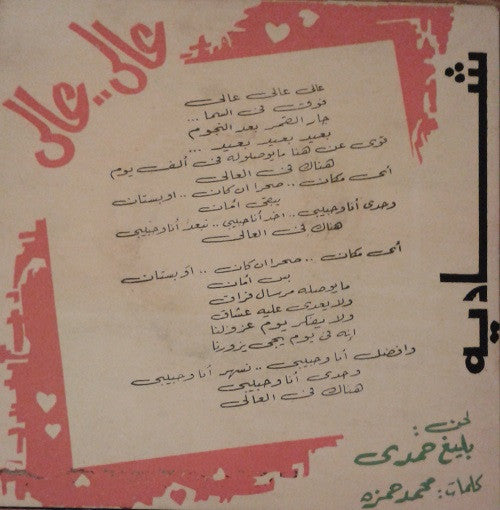 عالى .. عالى
شـــاديه
عالى عالى عالى
فوق فى السما ...
جار القمر بعد النجوم
بعيد بعيد بعيد ...
قوى عن هنا مايوصلوله فى ألف يوم
هناك فى العالى
أى مكان .. صحرا ان كان .. او بستان
يبقى أمان
وحدى أنا وحبيبى .. اخد أنا حبيبى .. نبعد أنا وحبيبى
هناك فى العالى
أى مكان .. صحرا ان كان .. او بستان
بس أمان
مايوصله مرسال فراق
ولا يعدى عليه عشاق
ولا يفكر يوم عزولنا
إنه فى يوم يجى يزورنا
وافضل أنا وحبيبى .. نسهر أنا وحبيبى
وحدى أنا وحبيبى
هناك فى العالى
لحن :
بليغ حمدى
كلمات : محمد حمزه